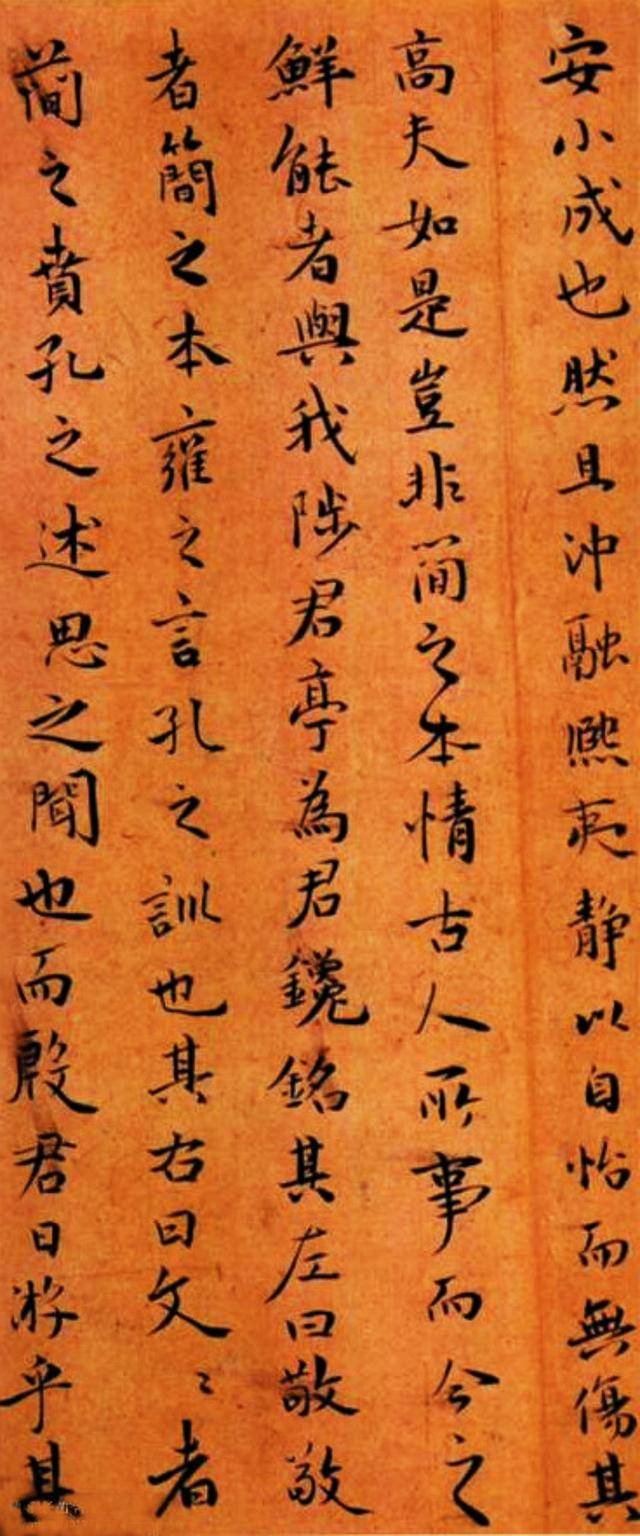 安小成也然且沖融熙夷靜以自怡而無傷其
高夫如是豈非簡之本情古人所事而今之
鮮能者與我陟君亭為君鑱銘其左曰敬敬
者簡之本雍之言孔之訓也其右曰文〻者
簡之賁孔之述思之聞也而殷君日游乎其